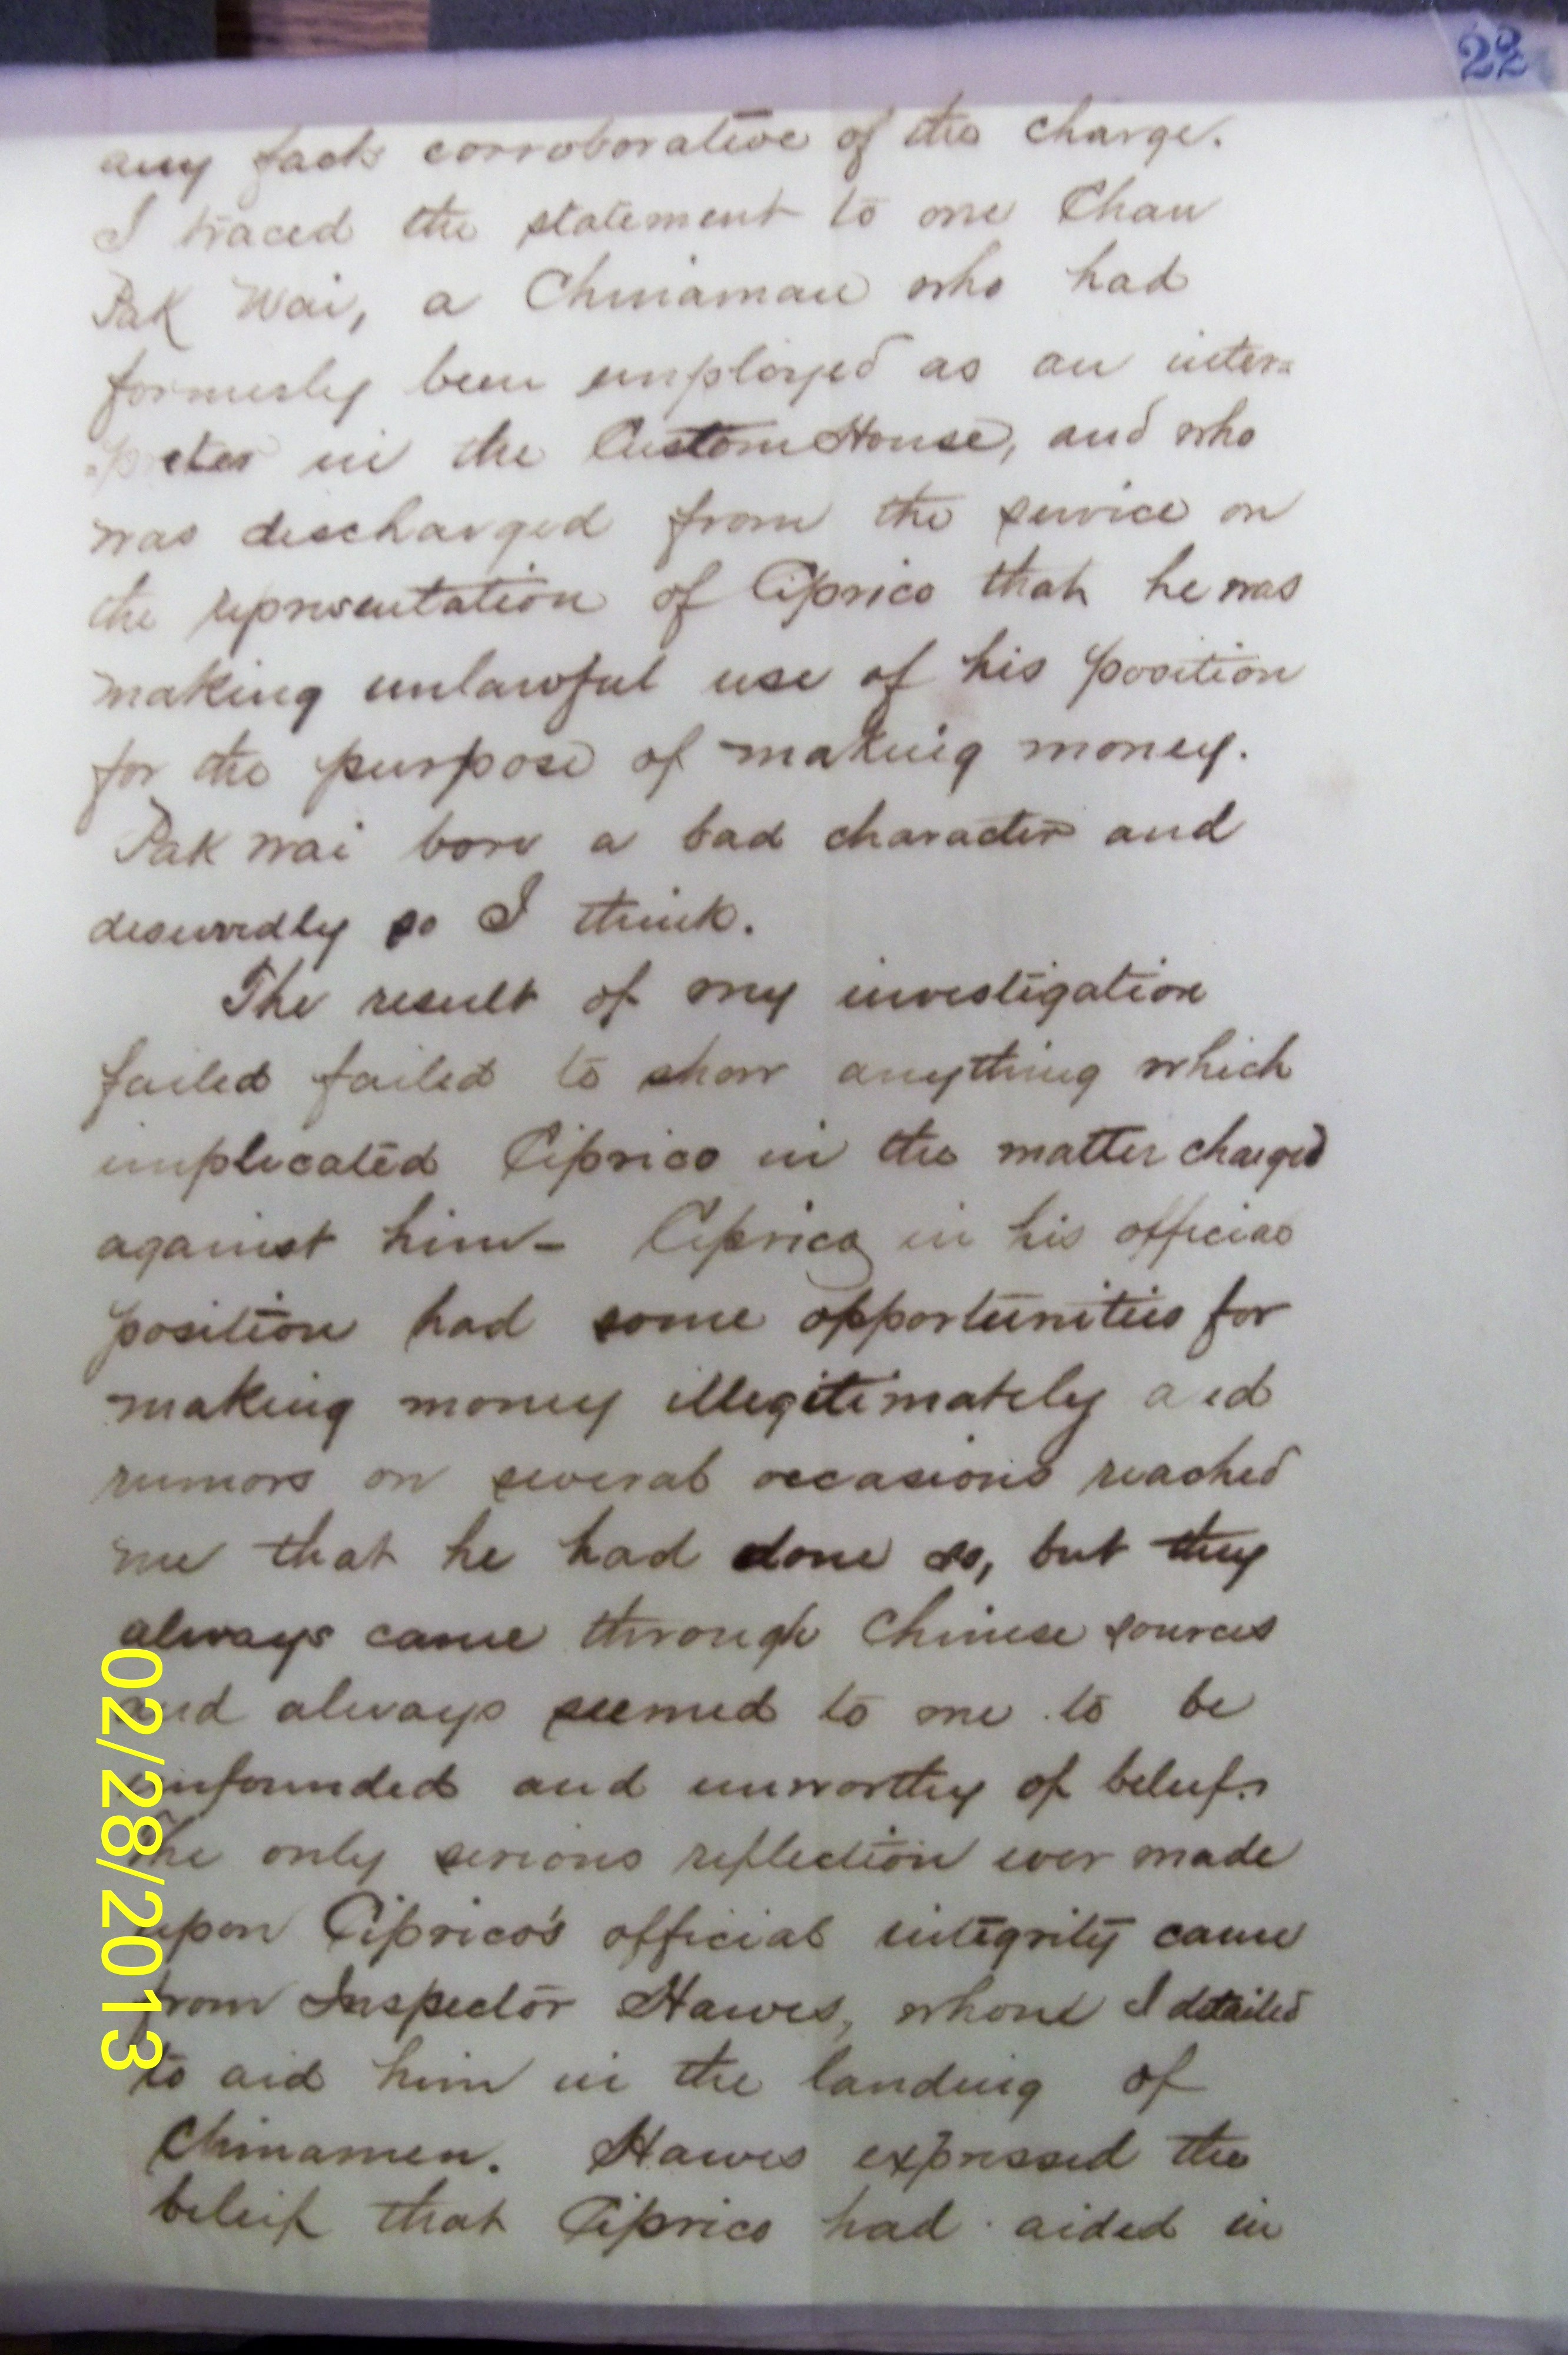 22
any fact corroborative of the charge.
I traced the statement to one Chan
Pak Wai, a Chinaman who had
formerly been employed as an inter=
preter in the Custom House, and who
was discharged from the service on
the representation of Ciprico that he was
making unlawful use of his position
for the purpose of making money.
Pak Wai bore a bad character and
deservedly so I think.
The result of my investigation
failed failed to show anything which
implicated Ciprico in the matter charged
against him - Ciprico in his official
position had some opportunities for
making money illegitimately and
rumors on several occasions reached
me that he had done so, but they
always came through Chinese sources
and always seemed to me to be
unfounded and unworthy of belief.
The only serious reflection ever made
upon Ciprico's official integrity came
from Inspector Hawes, whom I detailed
to aid him in the landing of
Chinamen. Hawes expressed the
beleif that Ciprico had aided in
02/28/2013